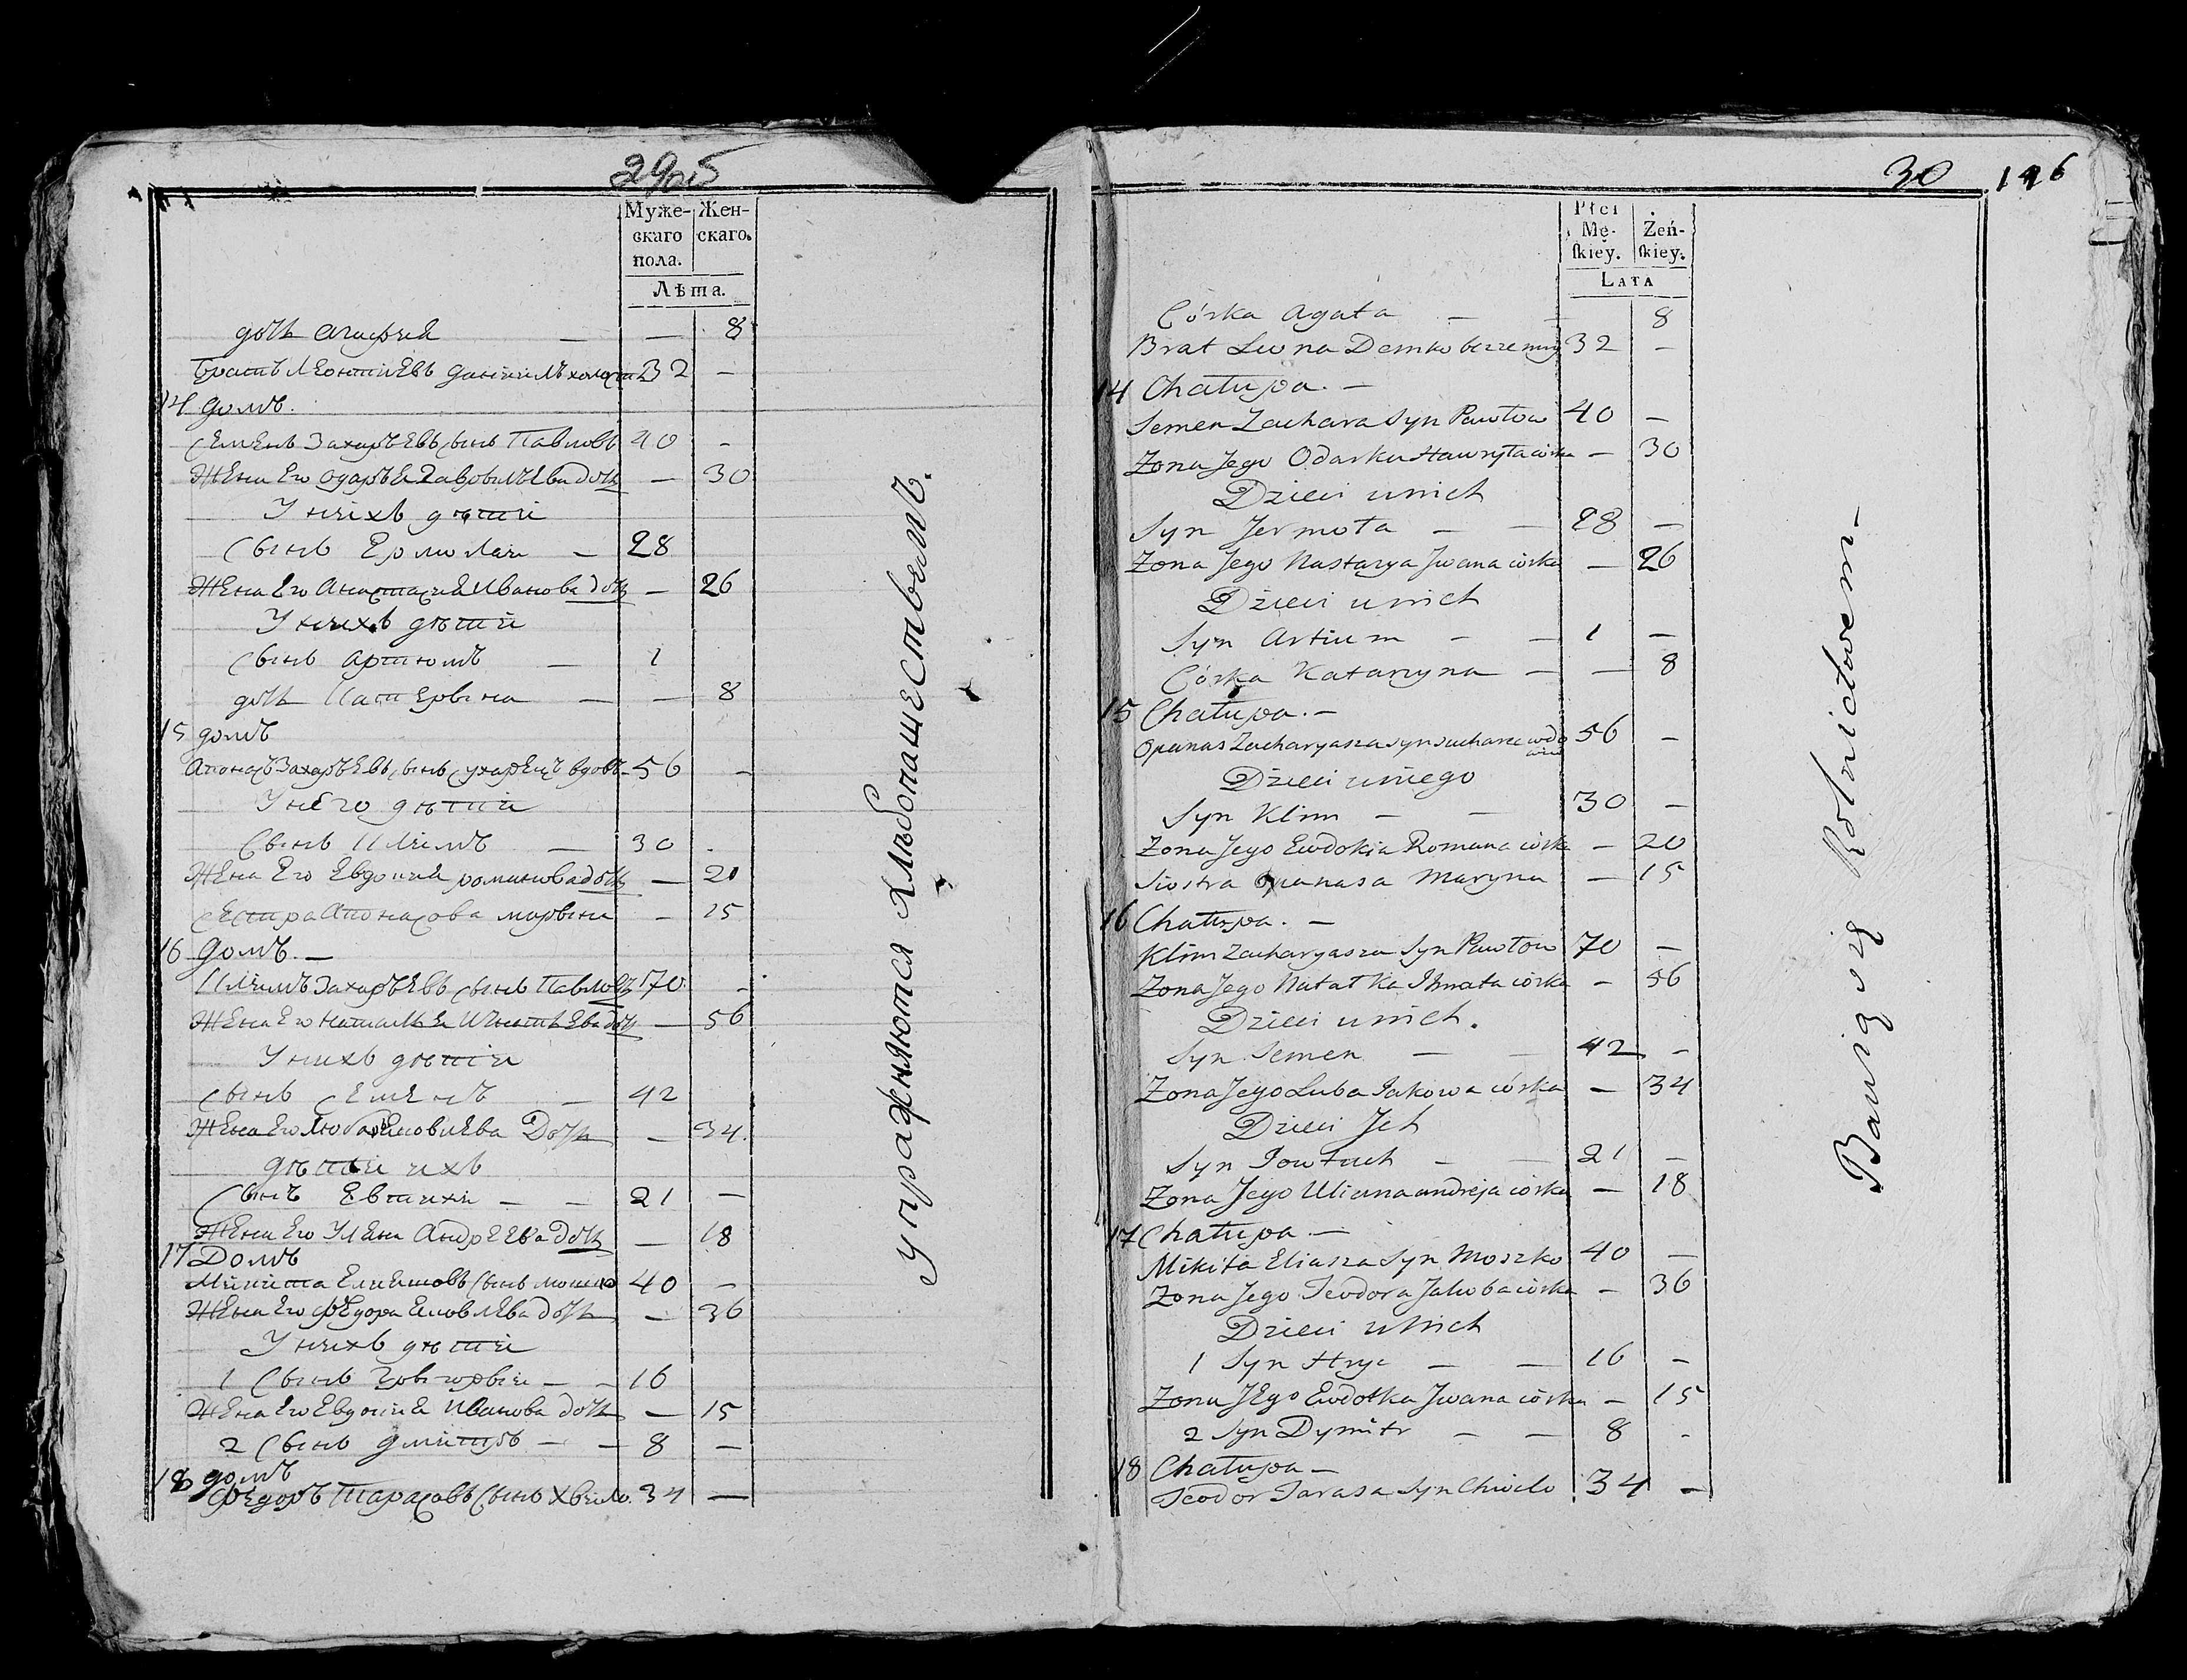 Муже-
скаго
пола.
Жен-
скаго.
Лѣта.
дочь Агафия — — 8
братъ Леонтиевъ Даниилъ холост 32 —
14 домъ.
Семенъ Захарьевъ сынъ Павловъ 40 -
Жена Его Одарья Гаврильева дочь — 30
У нихъ дѣти
Сынъ Ермолаи — 28
Жена Его Анастасия Иванова дочь — 26
У нихъ дѣти
Сынъ Артюмъ — 1
дочь Катерина — — 8
15 домъ
Апонасъ Захарьевъ сынъ Сухарецъ вдовъ 56 -
У него дѣти
Сынъ Климъ — 30 -
Жена Его Евдокия романова дочь — 20
Сестра Апонасова марына - 15
16 домъ. —
Климъ Захарьевъ сынъ Павловъ 70 -
Жена Его Наталья Игнатьева дочь — 56
У нихъ дѣти
Сынъ Семенъ — 42
Жена Его Люба Яковлева дочь - 34.
дѣти ихъ
Сынъ Евтихи — — 21 —
Жена Его Улена Андреева дочь — 18
17 Домъ
Микита Елиашовъ сынъ мошко 40 —
Жена Его Федора Яковлева дочь — 36
У нихъ дѣти
1 Сынъ Григорыи — — 16
Жена Его Евдокия Иванова дочь — 15
2 Сынъ дмитръ — — 8 —
18 домъ
Федоръ Тарасовъ сынъ Хвило. 34 —
упражняются хлѣбопашествомъ.
30 146
Płci
Mę-
ſkiey.
Żeń-
ſkiey.
LATA
Córka Agata — — 8
Brat Lwona Demko bezzenny 32 —
14 Chałupa. —
Semen Zachara Syn Pawłow 40 —
Zona Jego Odarka Hawryła córka — 30
Dzieci u nich
Syn Jermoła — — 28 —
Zona Jego Nastazya Jwana córka — 26
Dzieci u nich
Syn Artium — — 1 —
Córka Katarzyna — — 8
15 Chałupa. —
Opanas Zacharyasza syn Sucharec wdowiec 56 -
Dzieci u niego
Syn Klim — — 30 —
Zona Jego Ewdokia Romana córka — 20
Siostra Opanasa Maryna — 15
16 Chałupa. —
Klim Zacharyasza Syn Pawłow 70 —
Zona Jego Natałka Ihnata córka - 56
Dzieci u nich.
Syn Semen — — 42 -
Zona Jego Luba Jakowa córka — 34
Dzieci Jch
Syn Jowtuch — — 21 —
Zona Jego Uliana Andreja córka — 18
17 Chałupa —
Mikita Eliasza Syn Moszko 40 —
Zona Jego Teodora Jakoba córka — 36
Dzieci u nich
1 Syn Hryc — — 16 —
Zona Jego Ewdotka Jwana córka — 15
2 Syn Dymitr — — 8 -
18 Chałupa —
Teodor Tarasa Syn Chwilo 34 —
Bawią się Rolnictwem —